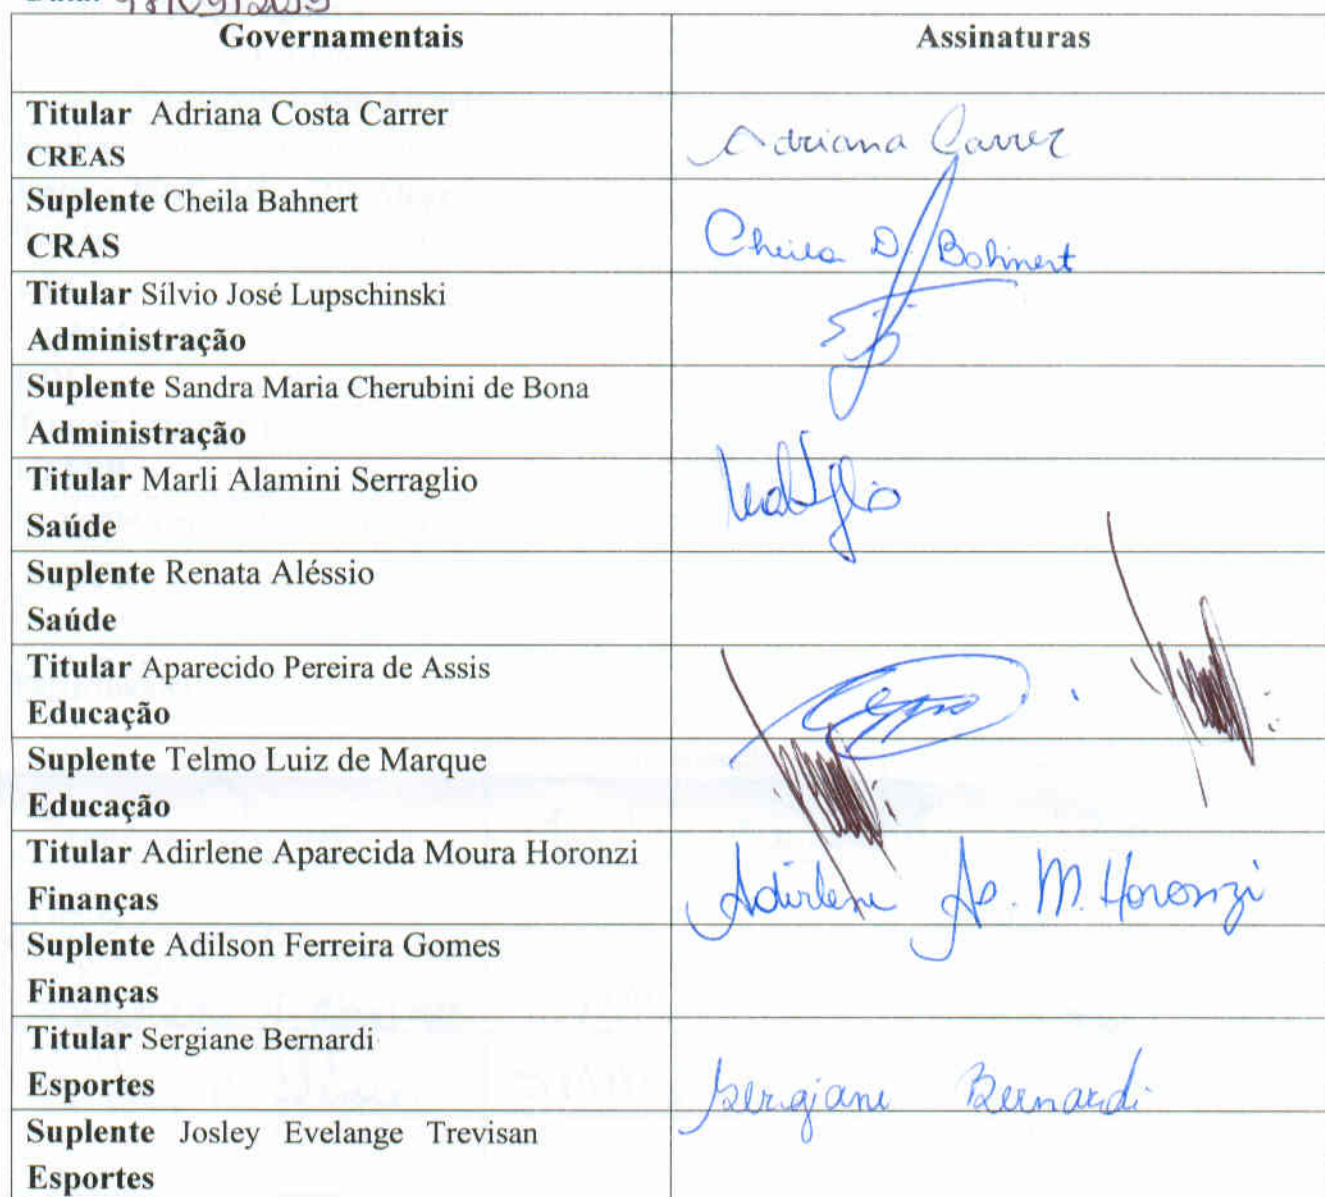 Governamentais Assinaturas
Titular Adriana Costa Carrer
CREAS
Adriana Carrer
Suplente Cheila Bahnert
CRAS
Cheila D. Bahnert
Titular Sílvio José Lupschinski
Administração
Suplente Sandra Maria Cherubini de Bona
Administração
Titular Marli Alamini Serraglio
Saúde
Suplente Renata Aléssio
Saúde
Titular Aparecido Pereira de Assis
Educação
Suplente Telmo Luiz de Marque
Educação
Titular Adirlene Aparecida Moura Horonzi
Finanças
Adirlene Ap. M. Horonzi
Suplente Adilson Ferreira Gomes
Finanças
Titular Sergiane Bernardi
Esportes
Sergiane Bernardi
Suplente Josley Evelange Trevisan
Esportes